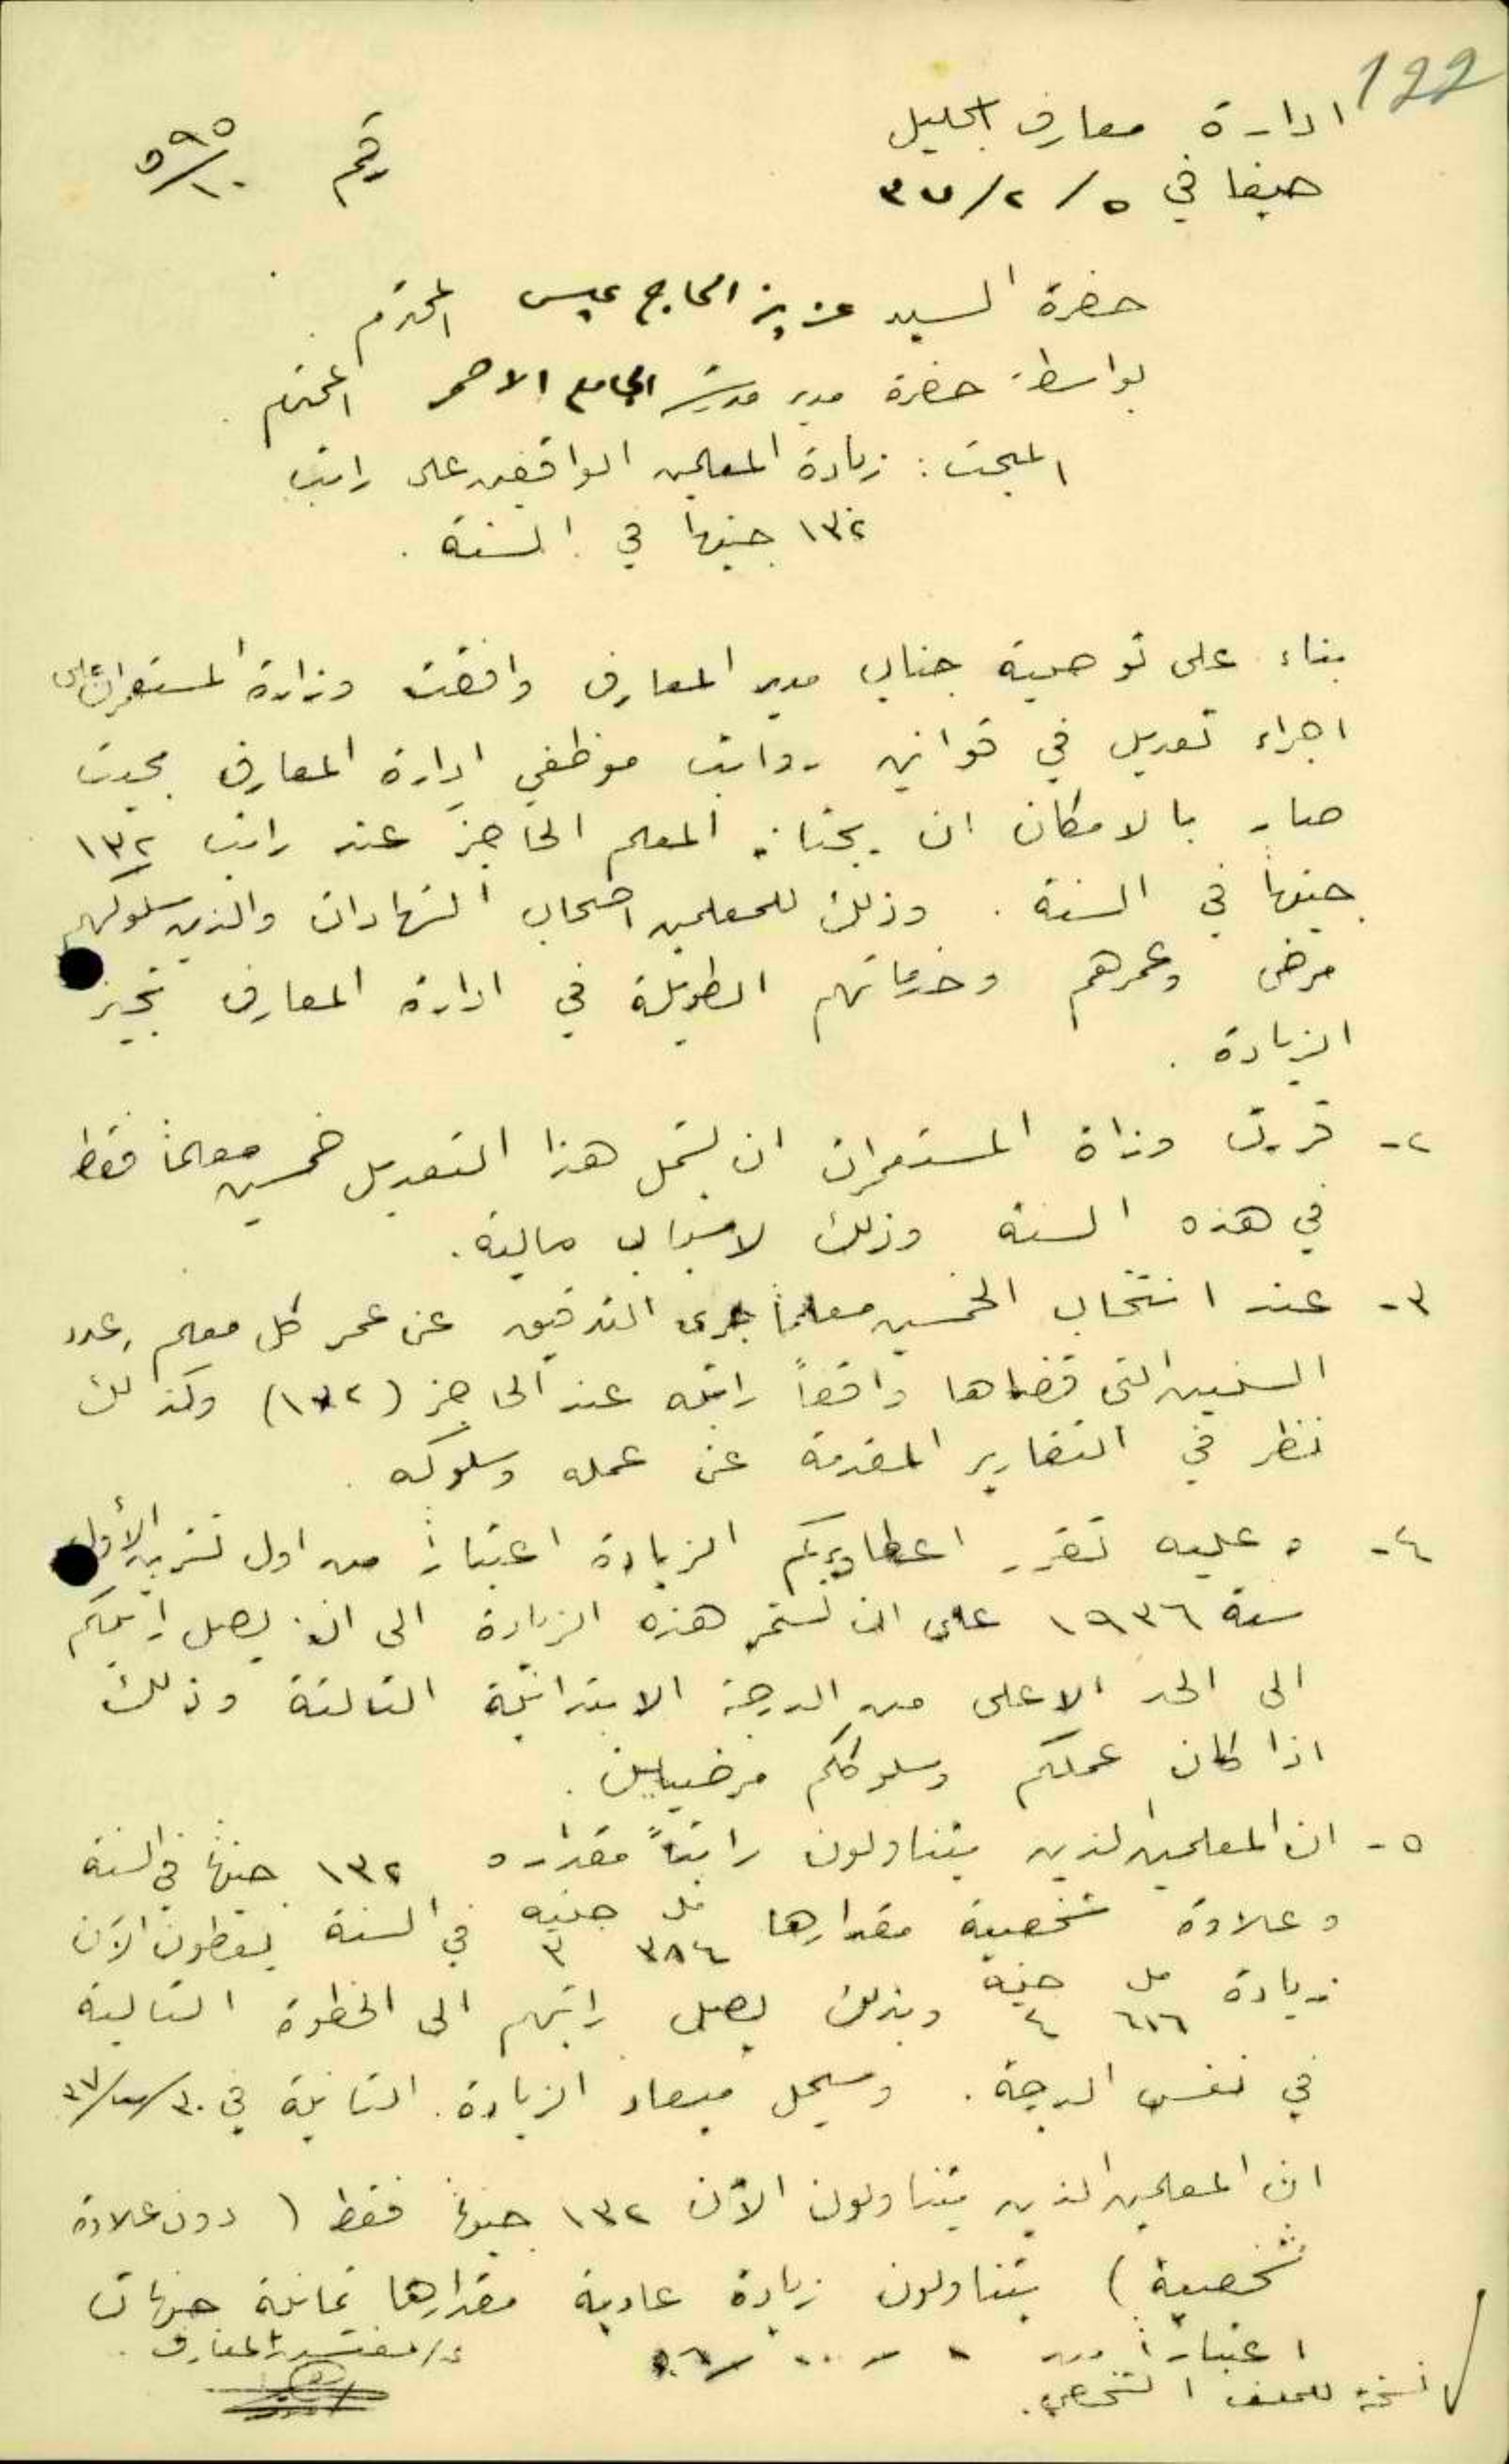 122
ادارة معارف الجليل
حيفا في ٥/٢/٣٧
رقم ٥٩٥
٥/١٠
حضرة السيد عزيز الحاج عيسى المحترم
بواسطة حضرة مدير مدرسة الجامع الاحمر المحترم
المبحث : زيادة المعلمين الواقفين على راتب
١٣٢ جنيهاً في السنة .
بناء على توصية جناب مدير المعارف وافقت وزارة المستعمرات على
اجراء تعديل في قوانين رواتب موظفي ادارة المعارف بحيث
صار بالامكان ان يجتاز المعلم الحاجز عند راتب ١٣٢
جنيهاً في السنة . وذلك للمعلمين اصحاب الشهادات والذين سلوكهم
مرضي وعمرهم وخدماتهم الطويلة في ادارة المعارف تجيز
الزيادة .
٢- قررت وزاة المستعمرات ان يشمل هذا التعديل خمسين معلماً فقط
في هذه السنة وذلك لاسباب مالية .
٣- عند انتخاب الخمسين معلماً جرى التدقيق عن عمر كل معلم وعدد
السنين التي قضاها واقفاً راتبه عند الحاجز (١٣٢) وكذلك
نظر في التقارير المقدمة عن عمله وسلوكه .
٤- وعليه تقرر اعطاؤكم الزيادة اعتباراً من اول تشرين الأول
سنة ١٩٣٦ على ان تستمر هذه الزيادة الى ان يصل راتبكم
الى الحد الاعلى من الدرجة الابتدائية الثالثة وذلك
اذا كان عملكم وسلوككم مرضيين .
٥- ان المعلمين الذين يتناولون راتباً مقداره ١٣٢ جنيهاً في السنة
وعلاوة شخصية مقدارها مل ٣٨٤ جنيه ٣ في السنة يعطون الآن
زيادة مل ٦١٦ جنيه ٤ وبذلك يصل راتبهم الى الخطوة التالية
في نفس الدرجة . وسيحل ميعاد الزيادة الثانية في
ان المعلمين الذين يتناولون الآن ١٣٢ جنيهاً فقط ( دون علاوة
شخصية ) يتناولون زيادة عادية مقدارها ثمانية جنيهات
اعتباراً من
ع/مفتش المعارف .
نسخة للملف الشخصي .